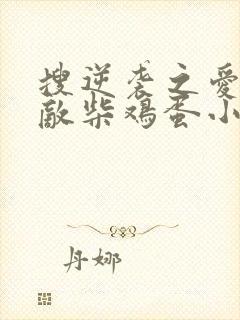 搜逆袭之爱
敵柴鸡蛋小
丹娜